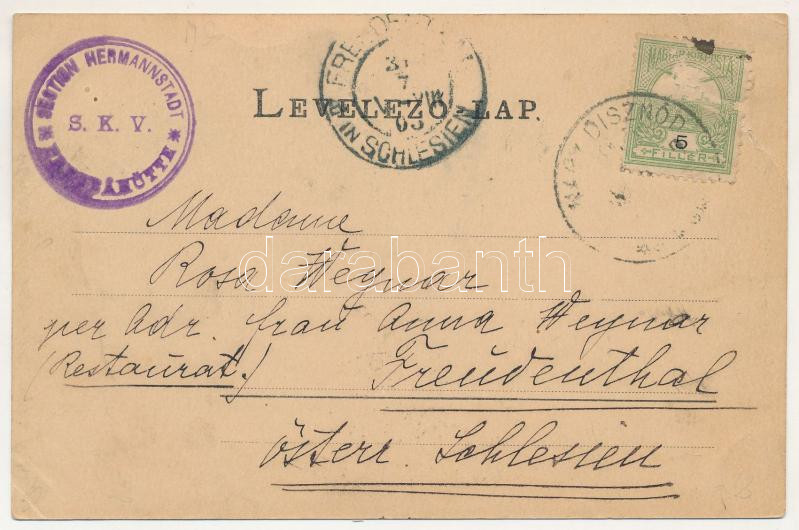 SECTION HERMANNSTADT
S. K. V.
FREUDENTHAL
31
7
VIII
03
IN SCHLESIEN
LEVELEZŐ-LAP.
MAGYAR KIR. POSTA
5
FILLÉR
NAGY DISZNÓD
Madame
Rosa Weynar
per Adr. frau Anna Weynar
(Restaurat.) Freudenthal
österr. Schlesien
darabanth